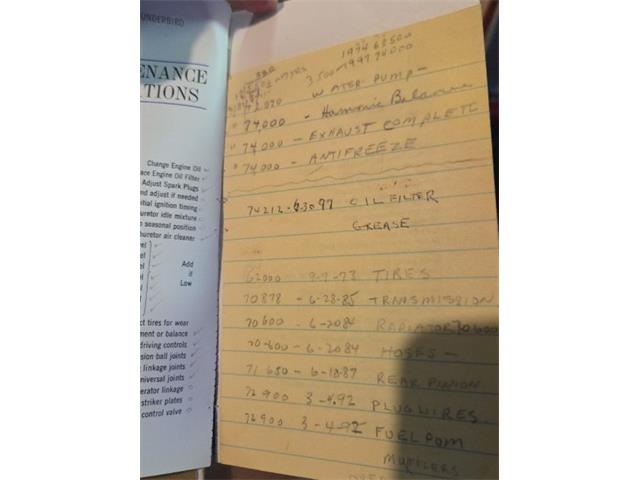 UNDERBIRD
ENANCE
TIONS
Change Engine Oil
ace Engine Oil Filter
Adjust Spark Plugs
nd adjust if needed
nitial ignition timing
buretor idle mixture
o seasonal position
buretor air cleaner
el
el
el
el
el
Add
if
Low
ct tires for wear
ment or balance
driving controls
sion ball joints
linkage joints
niversal joints
erator linkage
striker plates
control valve
1974 68500
3500 - 1997 74000
WATER PUMP -
74,000 - Harmonic Balance
" 74000 - EXHAUST COMPLETE
" 74000 - ANTIFREEZE
74212 - 6-30-97 OIL FILTER
GREASE
62000 9-7-73 TIRES
70878 - 6-28-85 TRANSMISSION
70600 - 6-2084 RADIATOR 70600
70600 - 6-2084 HOSES -
71650 - 6-18-87 REAR PINION
72900 3-4-92 PLUGWIRES
72900 3-4-92 FUEL POM
MUFILERS